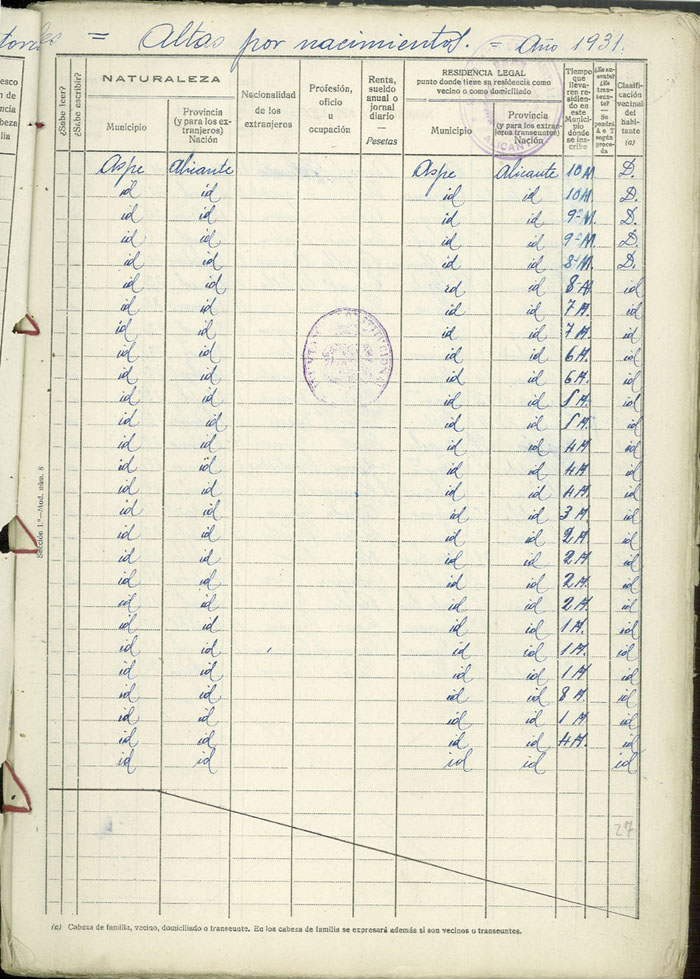 = Altas por nacimientos. = Año 1931.
¿Sabe leer?
¿Sabe escribir?
NATURALEZA
Municipio
Provincia
(y para los ex-
tranjeros)
Nación
Nacionalidad
de los
extranjeros
Profesión,
oficio
u
ocupación
Renta,
sueldo
anual o
jornal
diario
—
Pesetas
RESIDENCIA LEGAL
punto donde tiene su residencia como
vecino o como domiciliado
Municipio
Provincia
(y para los extran-
jeros transeuntes)
Nación
Tiempo
que
lleva-
ren re-
sidien-
do en
este
Municipio
donde
se ins-
cribe
Clasifi-
cación
vecinal
del
habi-
tante
(a)
Aspe Alicante Aspe Alicante 10 M D.
id id id id 10 M. D.
id id id id 9 M. D.
id id id id 9 M. D.
id id id id 8 M. D.
id id id id 8 M. id
id id id id 7 M. id
id id id id 7 M. id
id id id id 6 M. id
id id id id 6 M. id
id id id id 5 M. id
id id id id 5 M. id
id id id id 4 M. id
id id id id 4 M. id
id id id id 4 M. id
id id id id 3 M. id
id id id id 2 M. id
id id id id 2 M. id
id id id id 2 M. id
id id id id 2 M. id
id id id id 1 M. id
id id id id 1 M. id
id id id id 1 M id
id id id id 8 M. id
id id id id 1 M. id
id id id id 4 M. id
id id id id id
27
Sección 1.ª—Mod. núm. 8
(a) Cabeza de familia, vecino, domiciliado o transeunte. En los cabeza de familia se expresará además si son vecinos o transeuntes.